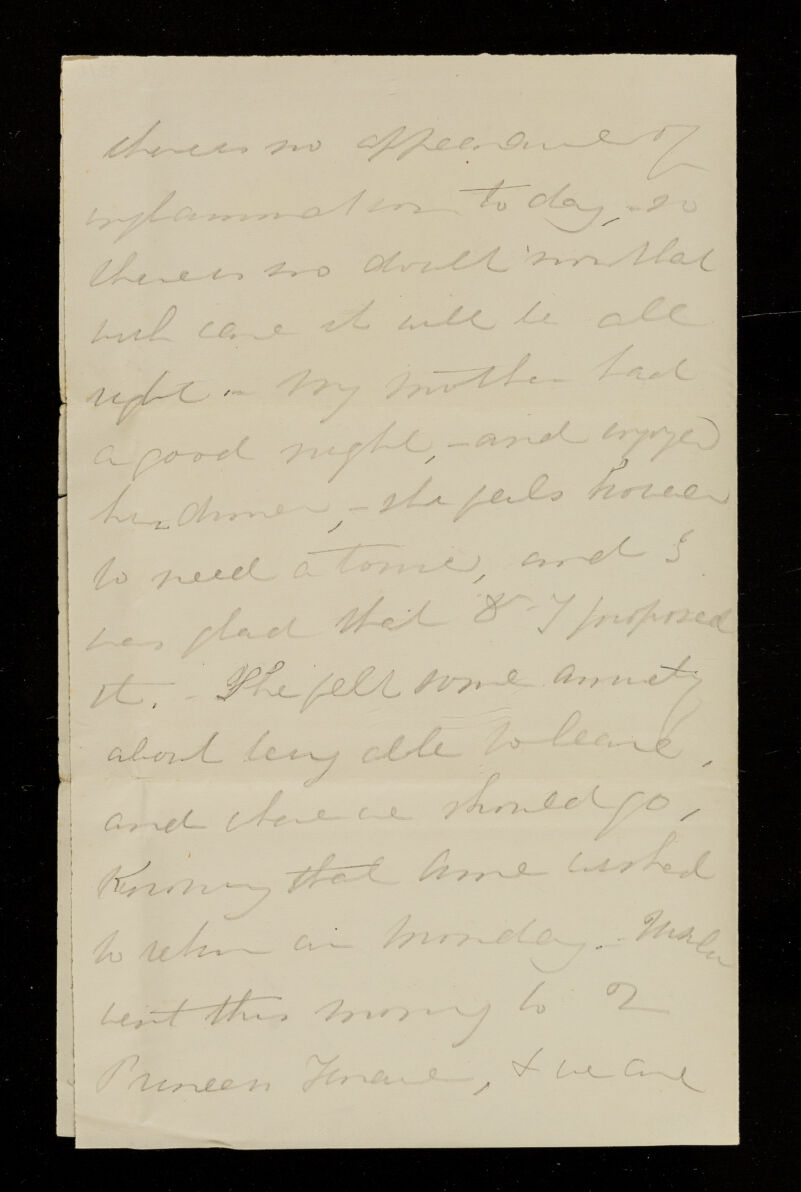 there is no appearance of
inflammation today, - so
there is no doubt now that
with care it will be all
right. - My mother had
a good night, - and enjoyed
her dinner, - she feels however
to need a tonic, and I
was glad that Dr T proposed
it. - She felt some anxiety
about being able to leave,
and where we should go,
Knowing that Anne wished
to return on Monday. -
went this morning to 2
Princess Terrace, & we are